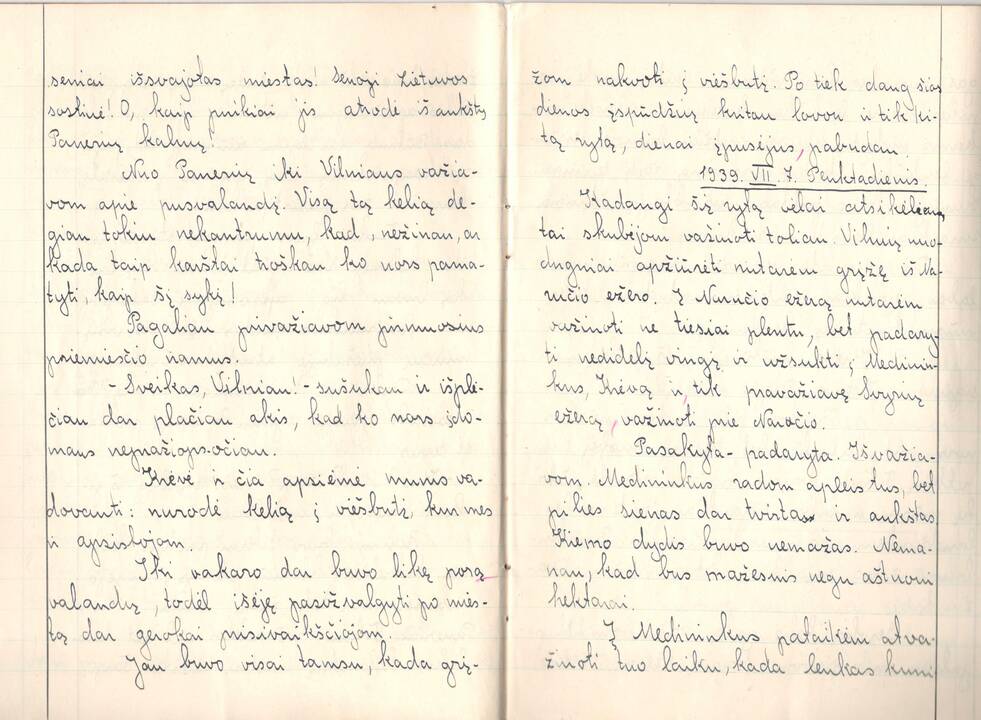 seniai išsvajotas miestas! Senoji Lietuvos
sostinė! O, kaip puikiai jis atrodė iš aukštų
Panerių kalnų!
Nuo Panerių iki Vilniaus važia-
vom apie pusvalandį. Visą tą kelią de-
giau tokiu nekantrumu, kad, nežinau, ar
kada taip karštai troškau ko nors pama-
tyti, kaip šį sykį!
Pagaliau privažiavom pirmuosius
priemiesčio namus.
- Sveikas, Vilniau! - sušukau ir išplė-
čiau dar plačiau akis, kad ko nors įdo-
maus nepražiopsočiau.
Krėvė ir čia apsiėmė mums va-
dovauti: nurodė kelią į viešbutį, kur mes
ir apsistojom.
Iki vakaro dar buvo likę porą
valandų, todėl išėję pasižvalgyti po mies-
tą dar gerokai prisivaikščiojom.
Jau buvo visai tamsu, kada grį-
žom nakvoti į viešbutį. Po tiek daug šios
dienos įspūdžių kritau lovon ir tik ki-
tą rytą, dienai įpusėjus, pabudau.
1939. VII. 7. Penktadienis.
Kadangi šį rytą vėlai atsikėlėme,
tai skubėjom važinoti toliau. Vilnių nuo-
dugniai apžiūrėti nutarėm grįžę iš Na-
ručio ežero. Į Naručio ežerą nutarėm
važinoti ne tiesiai plentu, bet padary-
ti nedidelį vingį ir užsukti į Medinin-
kus, Krėvą ir, tik pravažiavę Svyrių
ežerą, važinoti prie Naručio.
Pasakyta - padaryta. Išvažia-
vom. Medininkus radom apleistus, bet
pilies sienas dar tvirtas ir aukštas.
Kiemo dydis buvo nemažas. Nema-
nau, kad bus mažesnis negu aštuoni
hektarai.
Į Medininkus pataikėm atva-
žinoti tuo laiku, kada lenkas kuni-